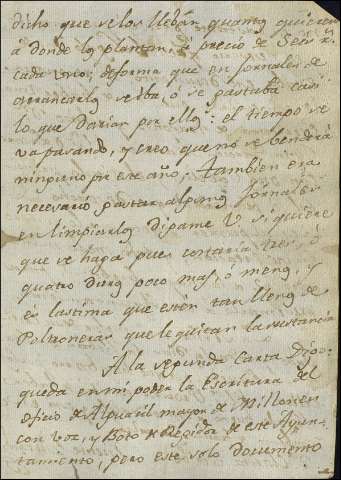 dicho que se los lleban quantos quieren
a donde lo plantan, á precio de Seis rs
cada uno; de forma que en Jornales de
arrancarlos se iba, ó se gastaba casi
lo que darian por ellos: el tiempo se
va pasando, y creo que no se benderá
ninguno por este año; tambien era
necesario gastar algunos Jornales
en limpiarlos digame V si quiere
que se haga pues costaria tres, ó
quatro duros poco mas, ó menos, y
es lastima que estén tan llenos de
que le quitan la sustancia
A la segunda Carta Digo
queda en mi poder la Escritura del
oficio de Alguacil mayor de Millones
con voz, y Boto de Regidor de este Ayun-
tamiento, pero este solo documento